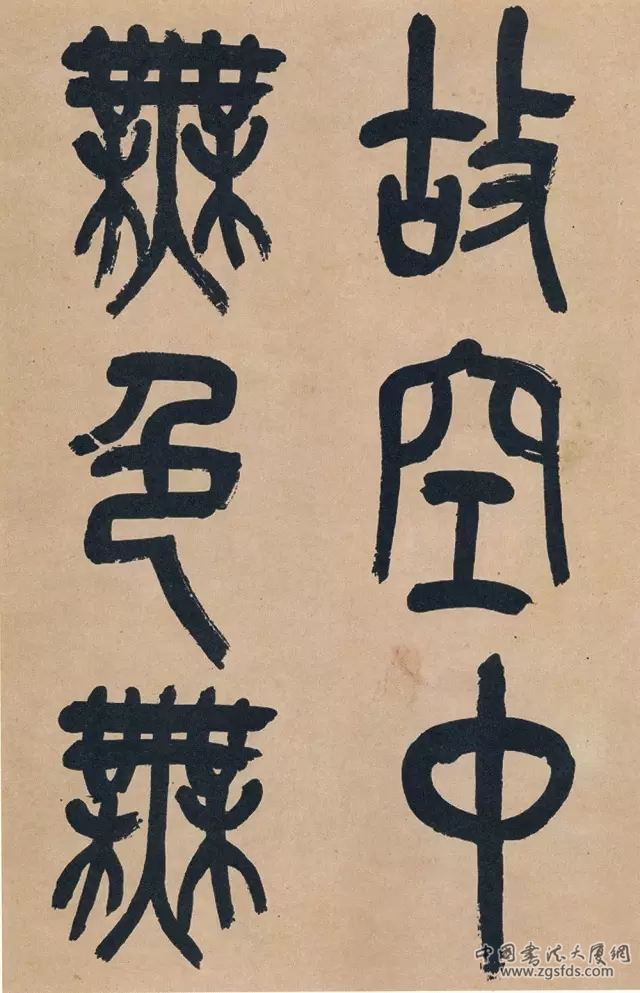 故空中
無色無
中國書法大厦網
www.zgsfds.com